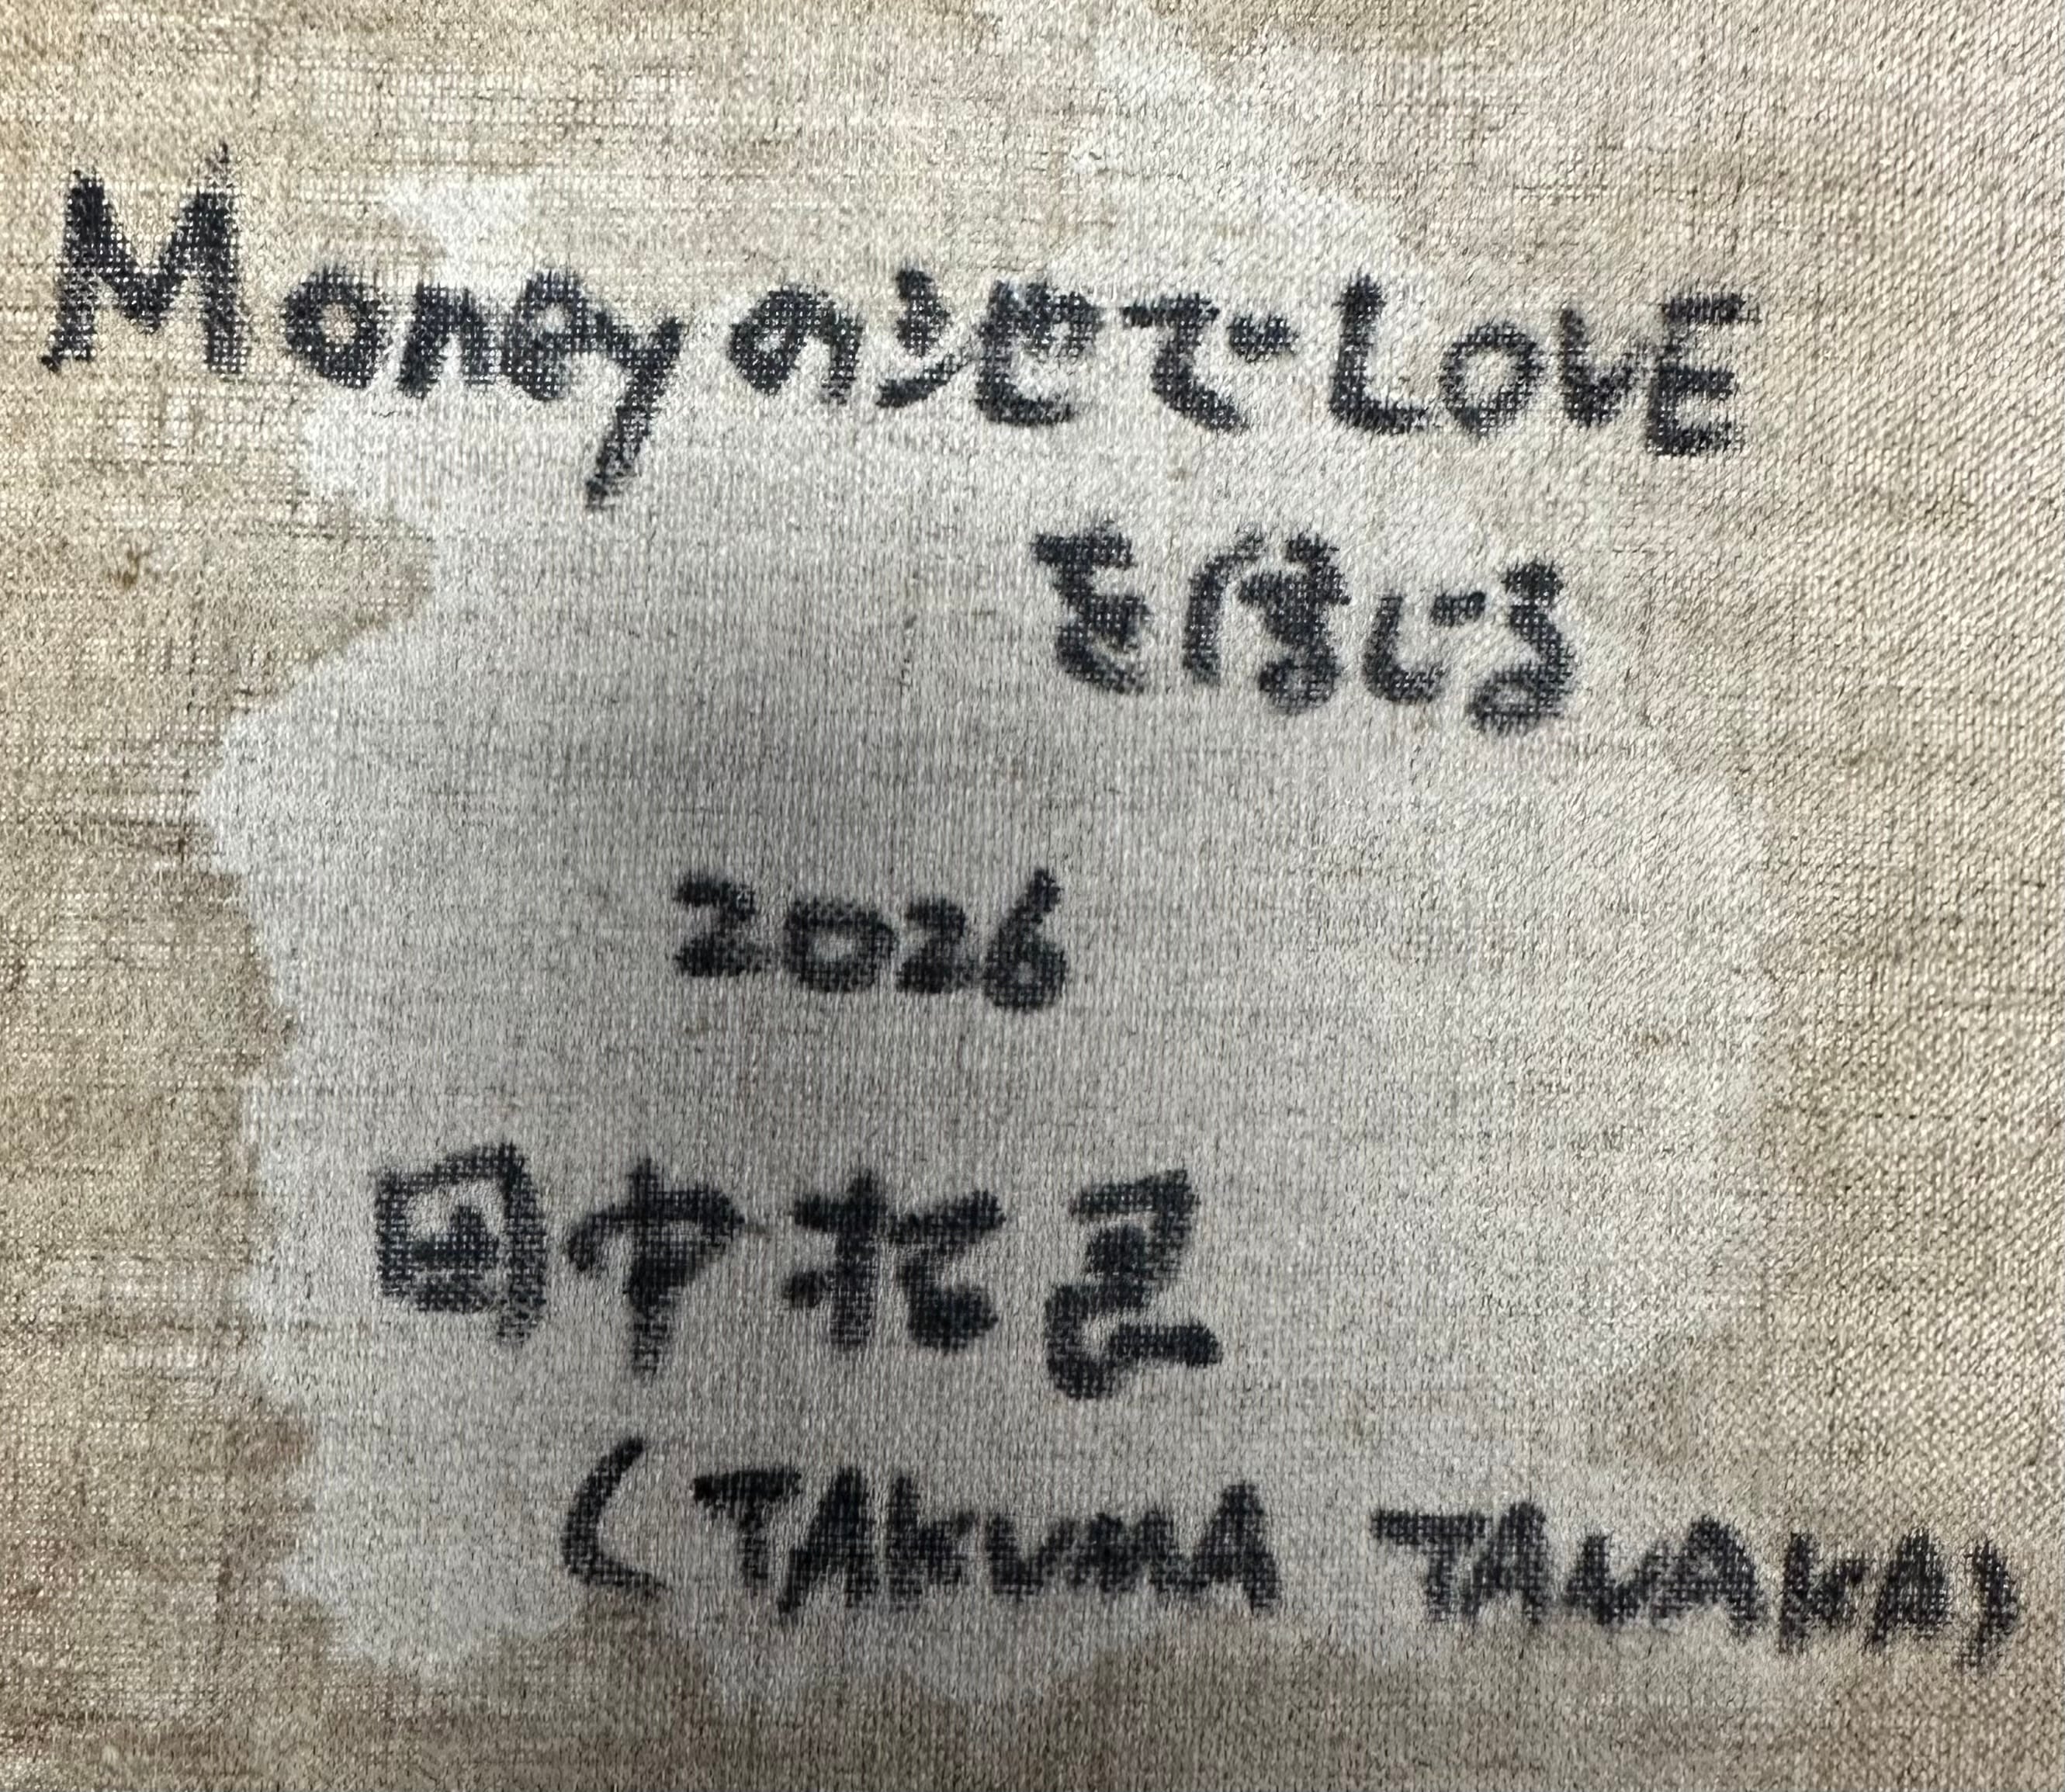 Moneyの でLOVE
を信じる
2026
田中拓馬
(TAKUMA TANAKA)